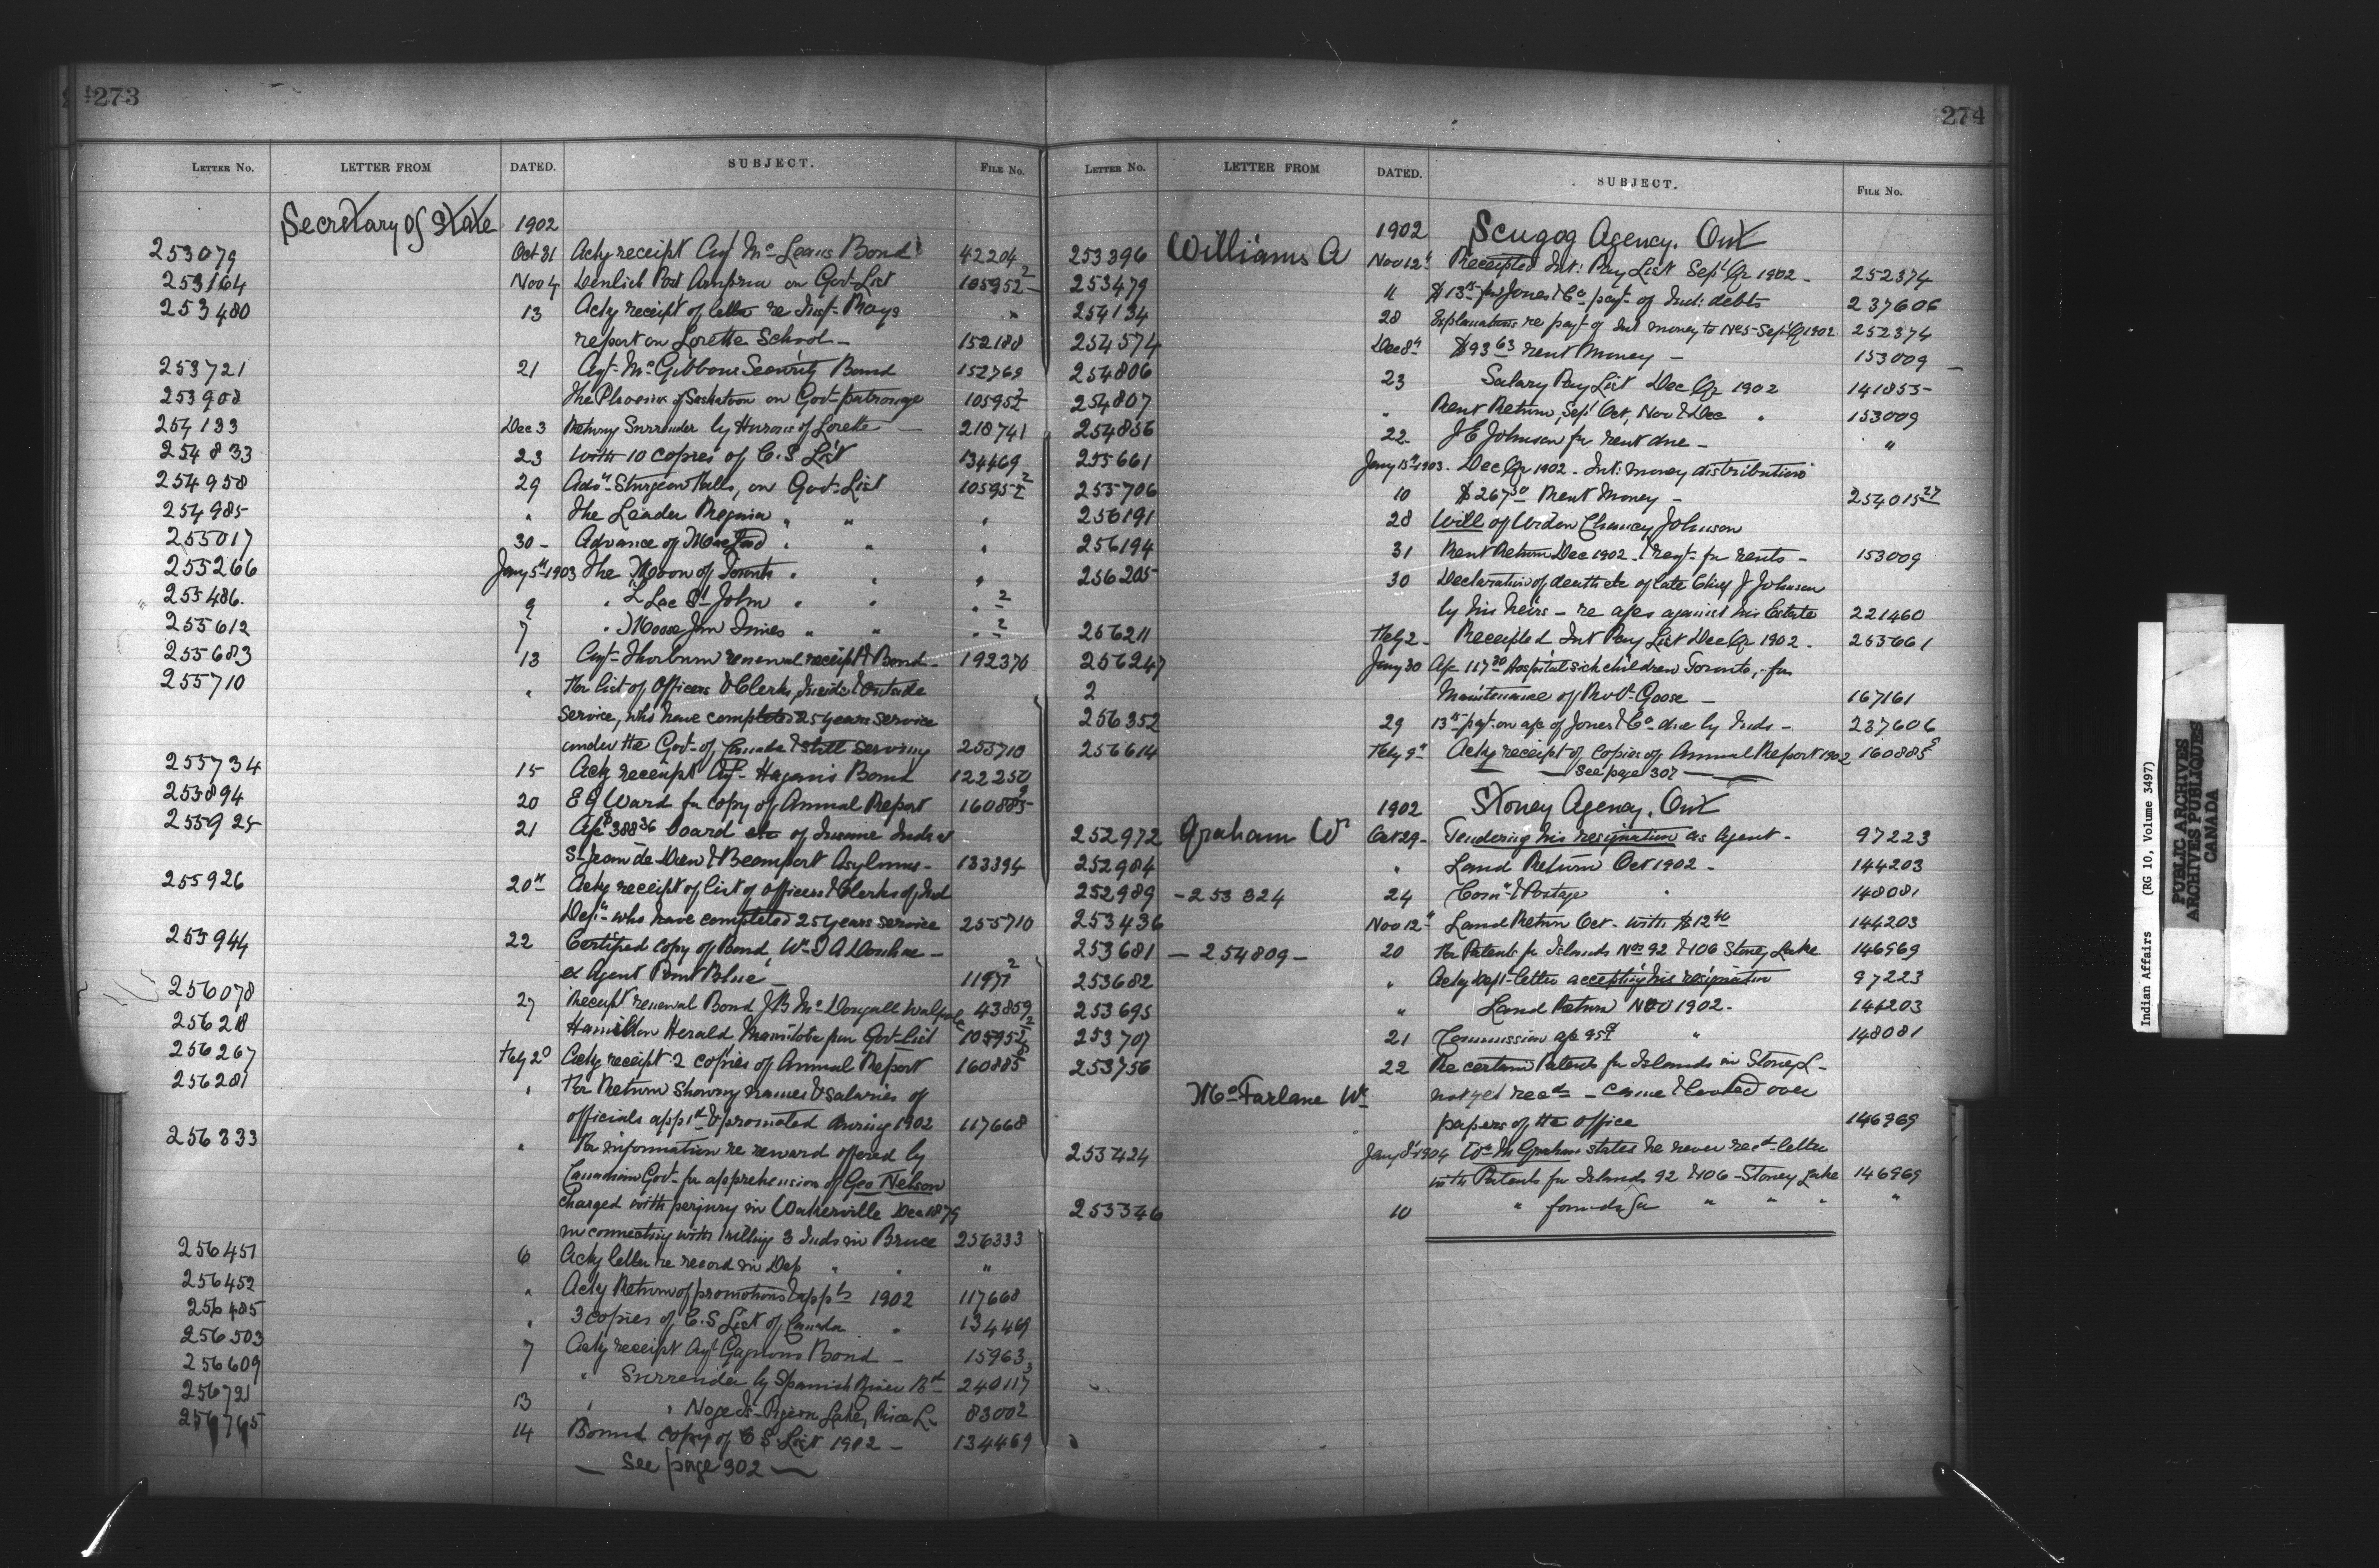 273
LETTER NO. LETTER FROM DATED. SUBJECT. FILE No.
Secretary of State 1902
253079 Oct 31 Ackg receipt Agt McLeans Bond 42204
253164 Nov 4 Post on Govt List 105952-2
253480 13 Ackg receipt of letter re Inst- Rays
report on Lorette School - 152188
253721 21 Agt- McGibbons Security Bond 152769
253908 The Phoenix of Saskatoon on Govt patronage 105952
254133 Dec 3 Retung Surrender by Hurons of Lorette - 218741
254833 23 With 10 copies of C.S List 134469
254958 29 Adsn- Sturgeon Falls, on Govt List 105952-2
254985 " The Leader Regina " " "
255017 30- Advance of " " "
255266 Jany 5th 1903 The Moon of Toronto " " "
255486. 9 " L Lac St John " " " 2
255612 7 " Moose Jaw Times " " " 2
255683 13 Agt- Thorburn renewal receipt & Bond- 192376
255710 " For list of Officers & Clerks, Inside & Outside
Service, who have completed 25 years service
under the Govt- of Canada & still serving 255710
255734 15 Ackg receipt Agt- Hagan's Bond 122250
255894 20 E G Ward for copy of Annual Report 160885-2
255925 21 A/c $388.36 board etc of Insane Inds at
St-Jean de Dieu & Beauport Asylums- 133394
255926 20th Ackg receipt of list of officers & Clerks of Ind
Dept- who have completed 25 years service 255710
255944 22 Certified copy of Bond, Wm I A Donohue -
ex Agent Point Blue - 11977-2
256078 27 Receipt renewal Bond J B McDougall Walpole 43859
256218 Hamilton Herald Manitoba fm Govt-List 105952-2
256267 Feby 2d Ackg receipt 2 copies of Annual Report 160885-8
256281 " For Return showing names & salaries of
officials appt'd & promoted during 1902 117668
256333 " For information re reward offered by
Canadian Govt- for apprehension of Geo Nelson
charged with perjury in Walkerville Dec 1879
in connection with killing 3 Inds in Bruce 256333
256451 6 Ackg letter re record in Dep " " "
256452 " Ackg Return of promotions & appts 1902 117668
256485 " 3 copies of C.S List of Canada " 134469
256503 7 Ackg receipt Agt Gagnons Bond - 15963
256609 " Surrender by Spanish River Bd 240117-3
256721 13 " " Noge Is- Pigeon Lake, Rice L- 83002
256765 14 Bound copy of C S List 1902 - 134469
— See page 302 —
274
LETTER NO. LETTER FROM DATED. SUBJECT. FILE No.
1902 Scugog Agency. Ont
253396 Williams A Nov 12th Receipted Int: Pay List Sept Qr 1902 - 252374
253479 " $13 for Jones & Co payt- of Ind: debts 237606
254134 28 Explanations re payt- of Int money to No 5-Sept Q 1902 252374
254574 Dec 8th $93.63 rent Money - 153009 -
254806 23 Salary Pay List Dec Qr 1902 141855-
254807 " Rent Return, Sept Oct, Nov & Dec " 153009
254856 22 J E Johnson for rent due - "
255661 Jany 15th 1903. Dec Qr 1902 - Int: money distribution
255706 10 $267.50 Rent Money - 254015-27
256191 28 Will of Chancey Johnson
256194 31 Rent Return Dec 1902. & reqt- for rents - 153009
256205 30 Declaration of death etc of late Chief J Johnson
by his heirs - re a/cs against his Estate 221460
256211 Feby 2- Receipted Int Pay List Dec Qr 1902 - 255661
256247 Jany 30 A/c 117.30 Hospital sick children Toronto, for
2 Maintenance of Robt- Goose - 167161
256352 29 13th payt- on a/c of Jones & Co- due by Inds - 237606
256614 Feby 9th Ackg receipt of copies of Annual Report 1902 160885-8
— See page 307 —
1902 Stoney Agency. Ont
252972 Graham W Oct 29- Tendering his resignation as Agent- 97223
252984 " Land Return Oct 1902 - 144203
252989 - 253324 24 Comn & Postage " 148081
253436 Nov 12th Land Return Oct- with $12.40 144203
253681 - 254809 - 20 For Patents for Islands Nos 92 & 106 Stoney Lake 146969
253682 " Ackg Dept- letter accepting his resignation 97223
253695 " Land Return Nov 1902 - 144203
253707 21 Commission a/c " 148081
253756 22 Re certain Patents for Islands in Stoney L-
McFarlane Wm not yet recd - came & looked over
papers of the office 146969
253424 Jany 8th 1904 Wm M Graham states he never recd- letter
with Patents for Islands 92 & 106 - Stoney Lake 146969
253346 10 " found " " " "
Indian Affairs (RG 10, Volume 3497)
PUBLIC ARCHIVES
ARCHIVES PUBLIQUES
CANADA